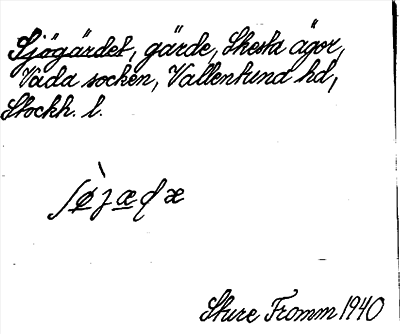 Sjögärdet, gärde, Skesta ägor,
Vada socken, Vallentuna hd,
Stockh. l.
Sture Fromm 1940